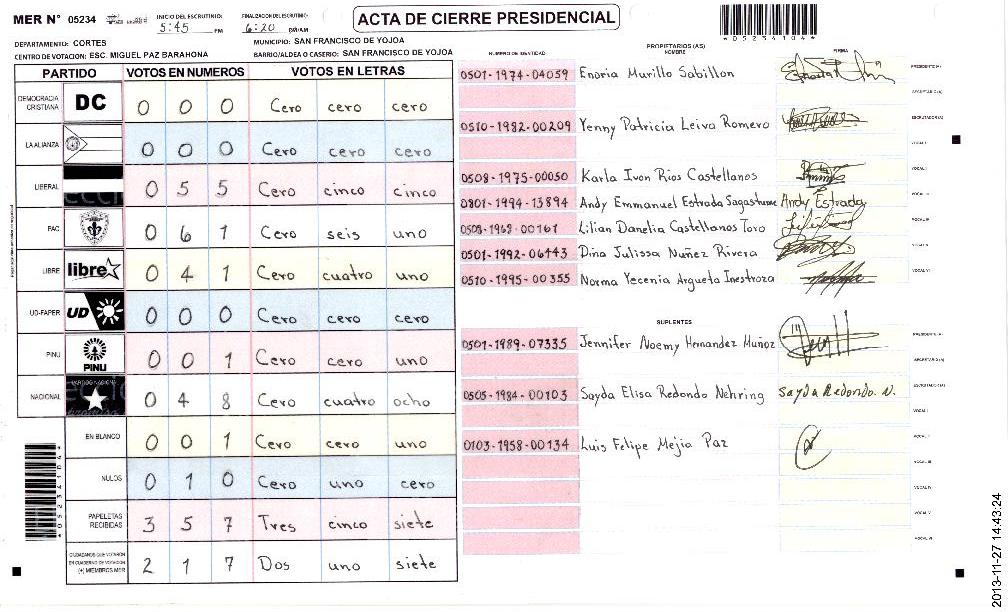 MER N° 05234
INICIO DEL ESCRUTINIO: 5:45 PM
FINALIZACION DEL ESCRUTINIO: 6:20
ACTA DE CIERRE PRESIDENCIAL
*05234104*
DEPARTAMENTO: CORTES
MUNICIPIO: SAN FRANCISCO DE YOJOA
CENTRO DE VOTACION: ESC. MIGUEL PAZ BARAHONA
BARRIO/ALDEA O CASERIO: SAN FRANCISCO DE YOJOA
PARTIDO VOTOS EN NUMEROS VOTOS EN LETRAS
DEMOCRACIA CRISTIANA DC 0 0 0 Cero cero cero
LA ALIANZA 0 0 0 Cero cero cero
LIBERAL 0 5 5 Cero cinco cinco
PAC 0 6 1 Cero seis uno
LIBRE libre 0 4 1 Cero cuatro uno
UD-FAPER UD 0 0 0 Cero cero cero
PINU PINU 0 0 1 Cero cero uno
NACIONAL 0 4 8 Cero cuatro ocho
EN BLANCO 0 0 1 Cero cero uno
NULOS 0 1 0 Cero uno cero
PAPELETAS RECIBIDAS 3 5 7 Tres cinco siete
CIUDADANOS QUE VOTARON EN CUADERNO DE VOTACION (+) MIEMBROS MER 2 1 7 Dos uno siete
NUMERO DE IDENTIDAD PROPIETARIOS (AS) NOMBRE FIRMA
0501-1974-04059 Enoria Murillo Sabillon PRESIDENTE (A)
SECRETARIO (A)
0510-1982-00209 Yenny Patricia Leiva Romero ESCRUTADOR (A)
VOCAL I
0508-1975-00050 Karla Ivon Rios Castellanos
0801-1994-13894 Andy Emmanuel Estrada Sagastume Andy Estrada
Lilian Danelia Castellanos Toro
0501-1992-06443 Dina Julissa Nuñez Rivera
0510-1995-00355 Norma Yecenia Argueta Inestroza
SUPLENTES
0501-1989-07335 Jennifer Noemy Hernandez Muñoz PRESIDENTE (A)
SECRETARIO (A)
0505-1984-00103 Sayda Elisa Redondo Nehring Sayda Redondo. N. ESCRUTADOR (A)
VOCAL I
0103-1958-00134 Luis Felipe Mejia Paz
VOCAL III
VOCAL IV
VOCAL V
VOCAL VI
2013-11-27 14:43:24